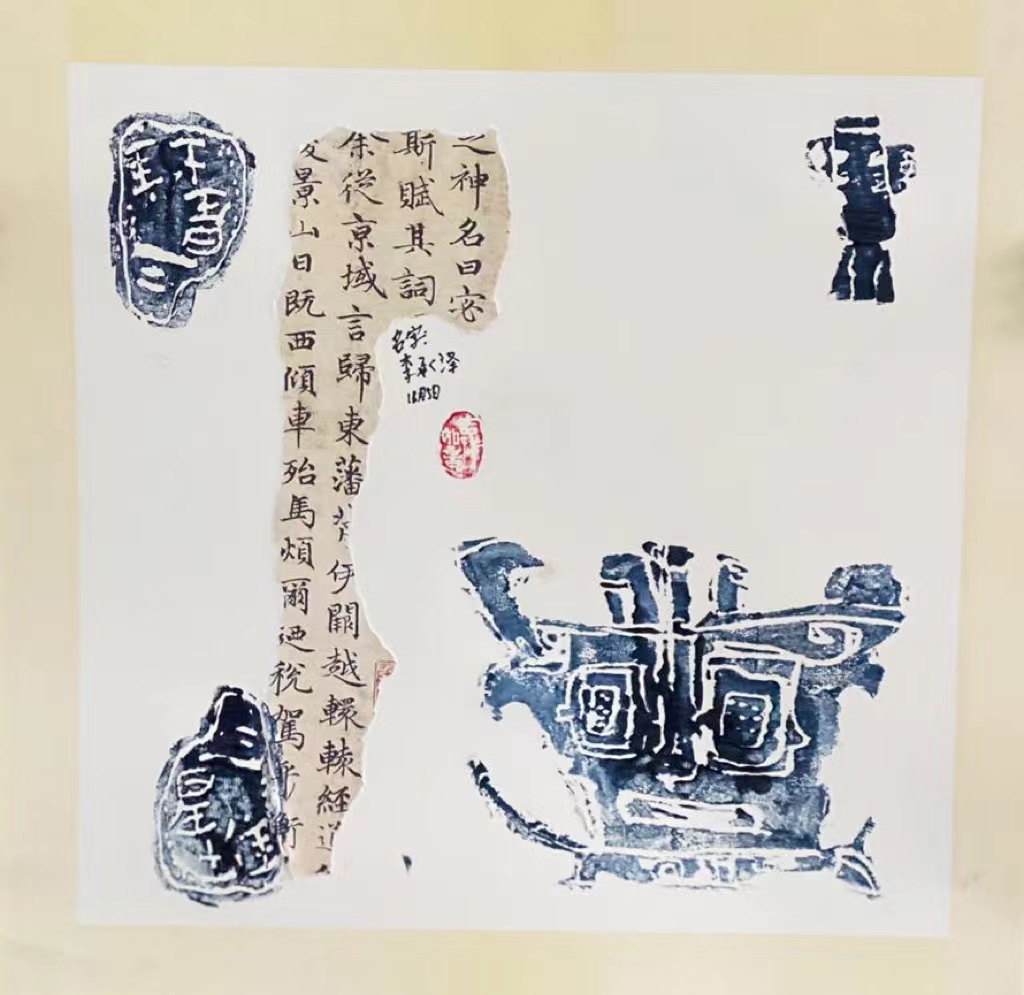 之神名曰宓
斯賦其詞
余從京域言歸東藩背伊闕越轘轅經通
景山日既西傾車殆馬煩爾迺稅駕乎
李承泽
吉祥如意
三星堆